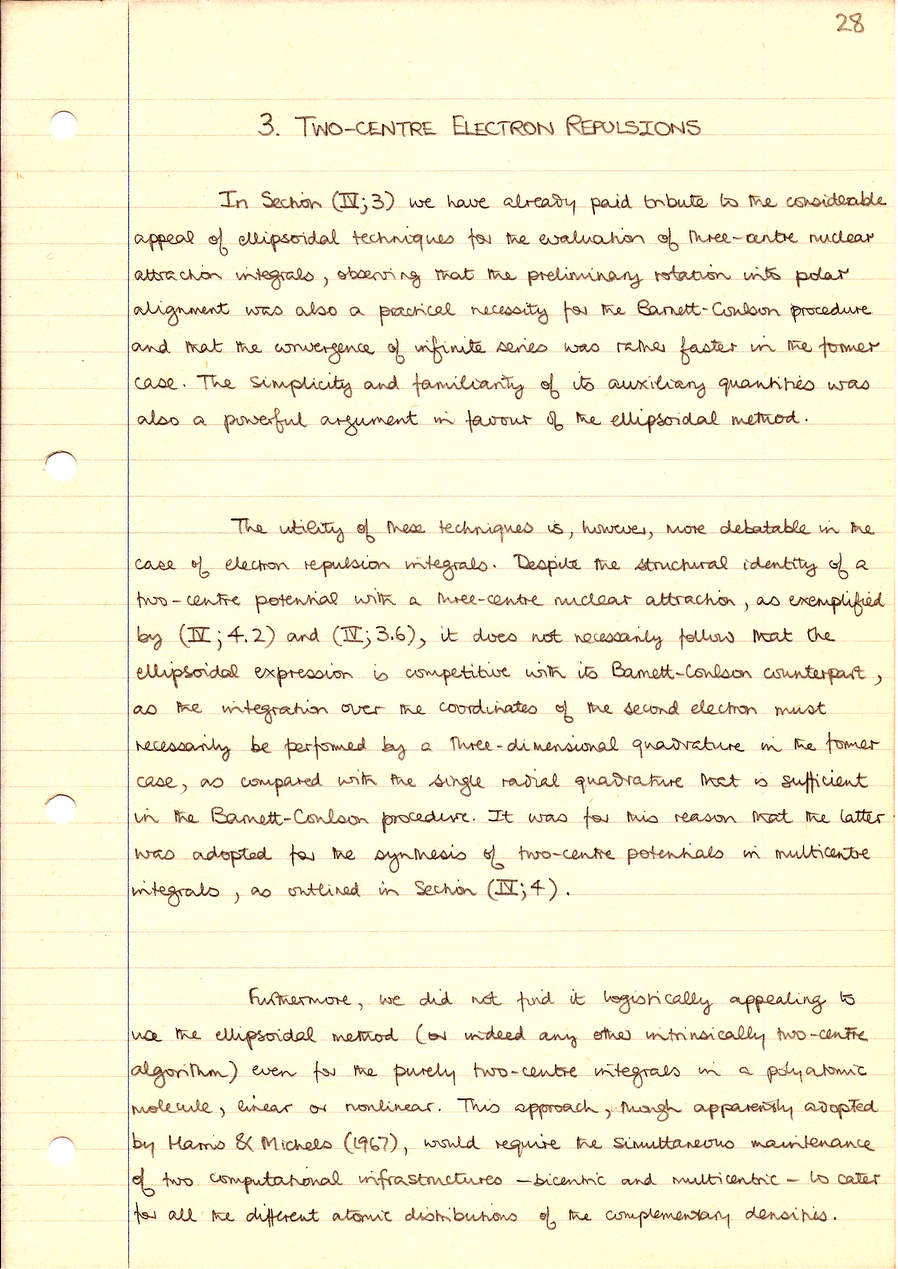 28
3. TWO-CENTRE ELECTRON REPULSIONS
In Section (IV;3) we have already paid tribute to the considerable
appeal of ellipsoidal techniques for the evaluation of three-centre nuclear
attraction integrals, observing that the preliminary rotation into polar
alignment was also a practical necessity for the Barnett-Coulson procedure
and that the convergence of infinite series was rather faster in the former
case. The simplicity and familiarity of its auxiliary quantities was
also a powerful argument in favour of the ellipsoidal method.
The utility of these techniques is, however, more debatable in the
case of electron repulsion integrals. Despite the structural identity of a
two-centre potential with a three-centre nuclear attraction, as exemplified
by (IV;4.2) and (IV;3.6), it does not necessarily follow that the
ellipsoidal expression is competitive with its Barnett-Coulson counterpart,
as the integration over the coordinates of the second electron must
necessarily be performed by a three-dimensional quadrature in the former
case, as compared with the single radial quadrature that is sufficient
in the Barnett-Coulson procedure. It was for this reason that the latter
was adopted for the synthesis of two-centre potentials in multicentre
integrals, as outlined in Section (IV;4).
Furthermore, we did not find it logistically appealing to
use the ellipsoidal method (or indeed any other intrinsically two-centre
algorithm) even for the purely two-centre integrals in a polyatomic
molecule, linear or nonlinear. This approach, though apparently adopted
by Harris & Michels (1967), would require the simultaneous maintenance
of two computational infrastructures - bicentric and multicentric - to cater
for all the different atomic distributions of the complementary densities.